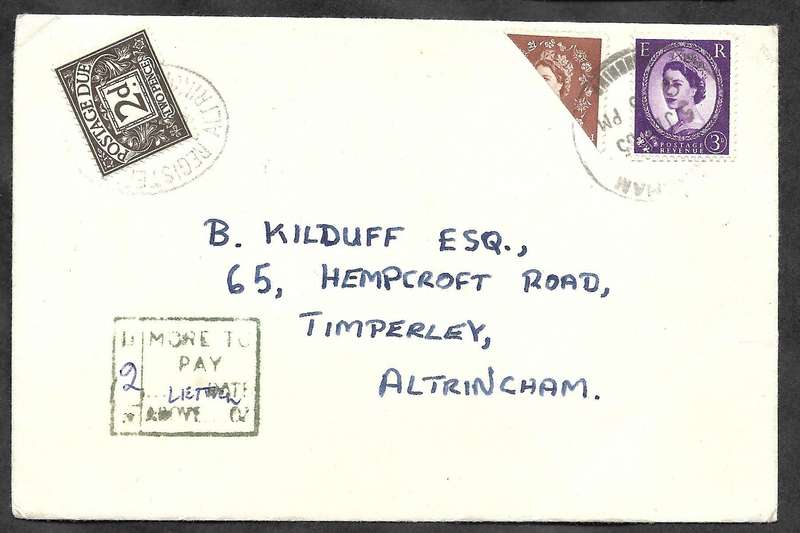 POSTAGE DUE
2d.
TWO PENCE
REGISTE
ALTRIN
E R
POSTAGE
REVENUE
3D
PM
HAM
B. KILDUFF ESQ.,
65, HEMPCROFT ROAD,
TIMPERLEY,
ALTRINCHAM.
MORE TO
PAY
2
ABOVE